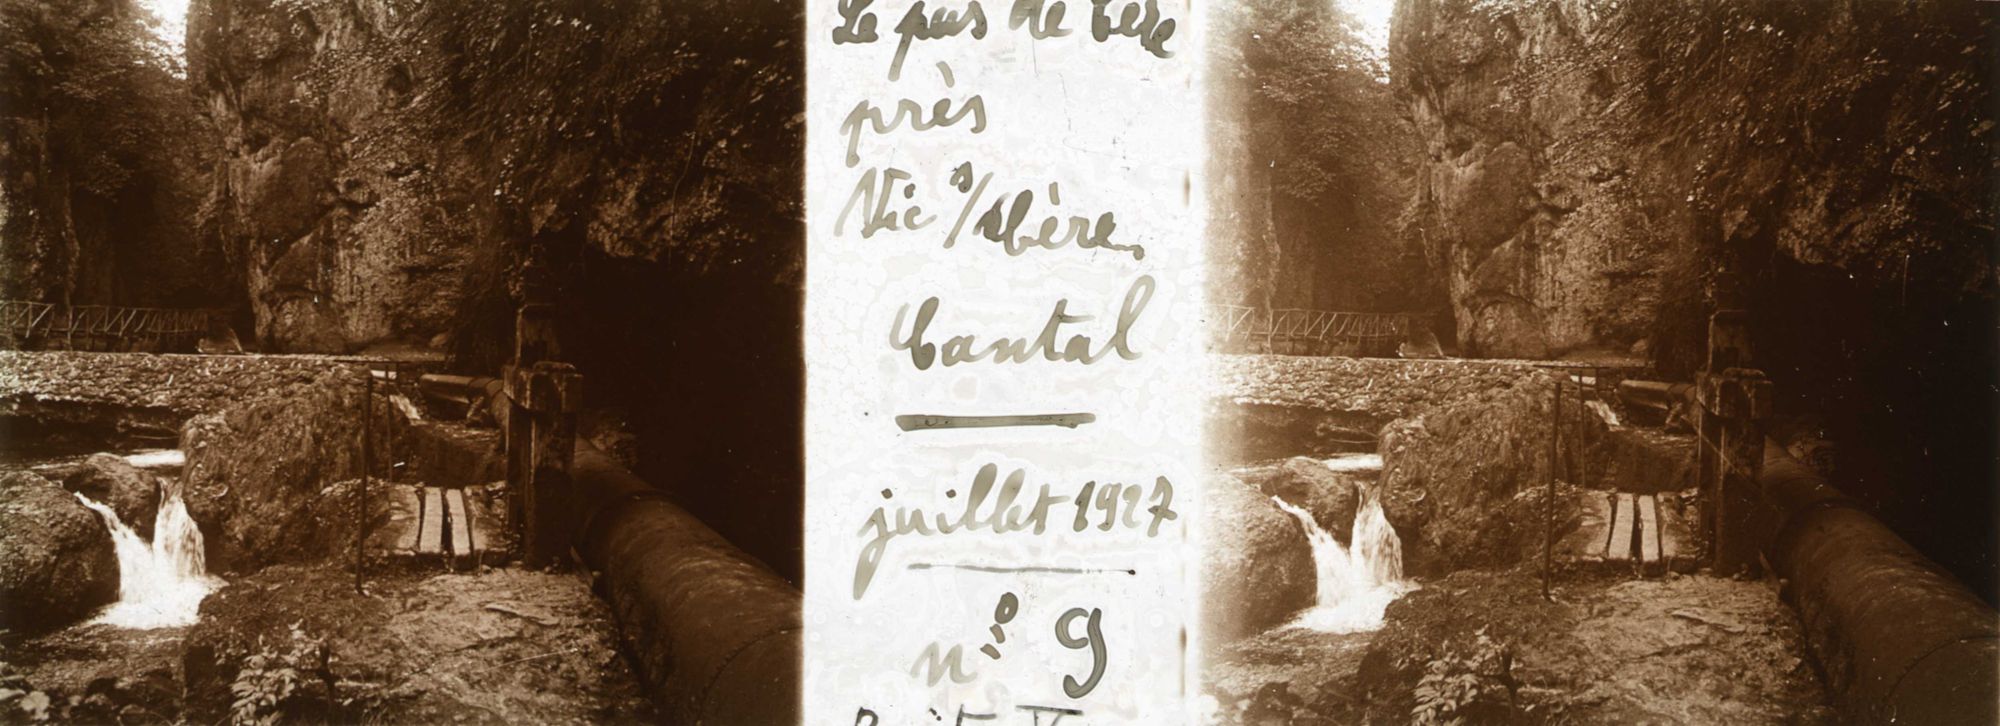 Le pas de Cère
près
Vic s/ Cère
Cantal
juillet 1927
n° 9